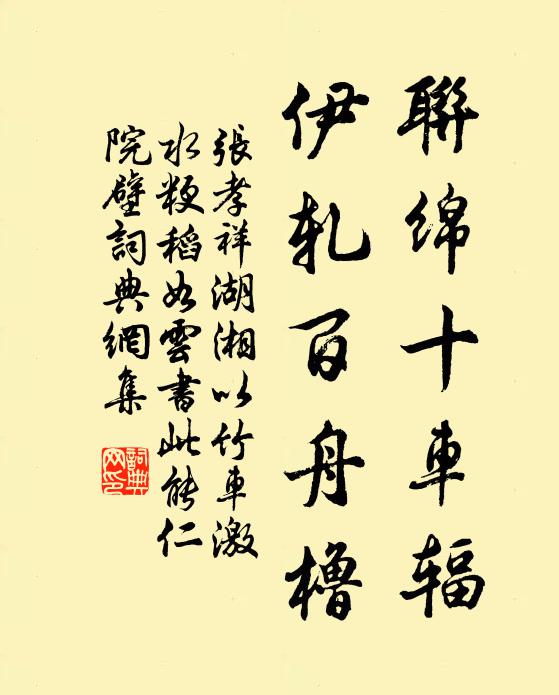 聯绵十車辐
伊轧百舟櫓
張孝祥湖湘以竹車激
水粳稻如雲書此能仁
院壁詞典網集
詞典网印